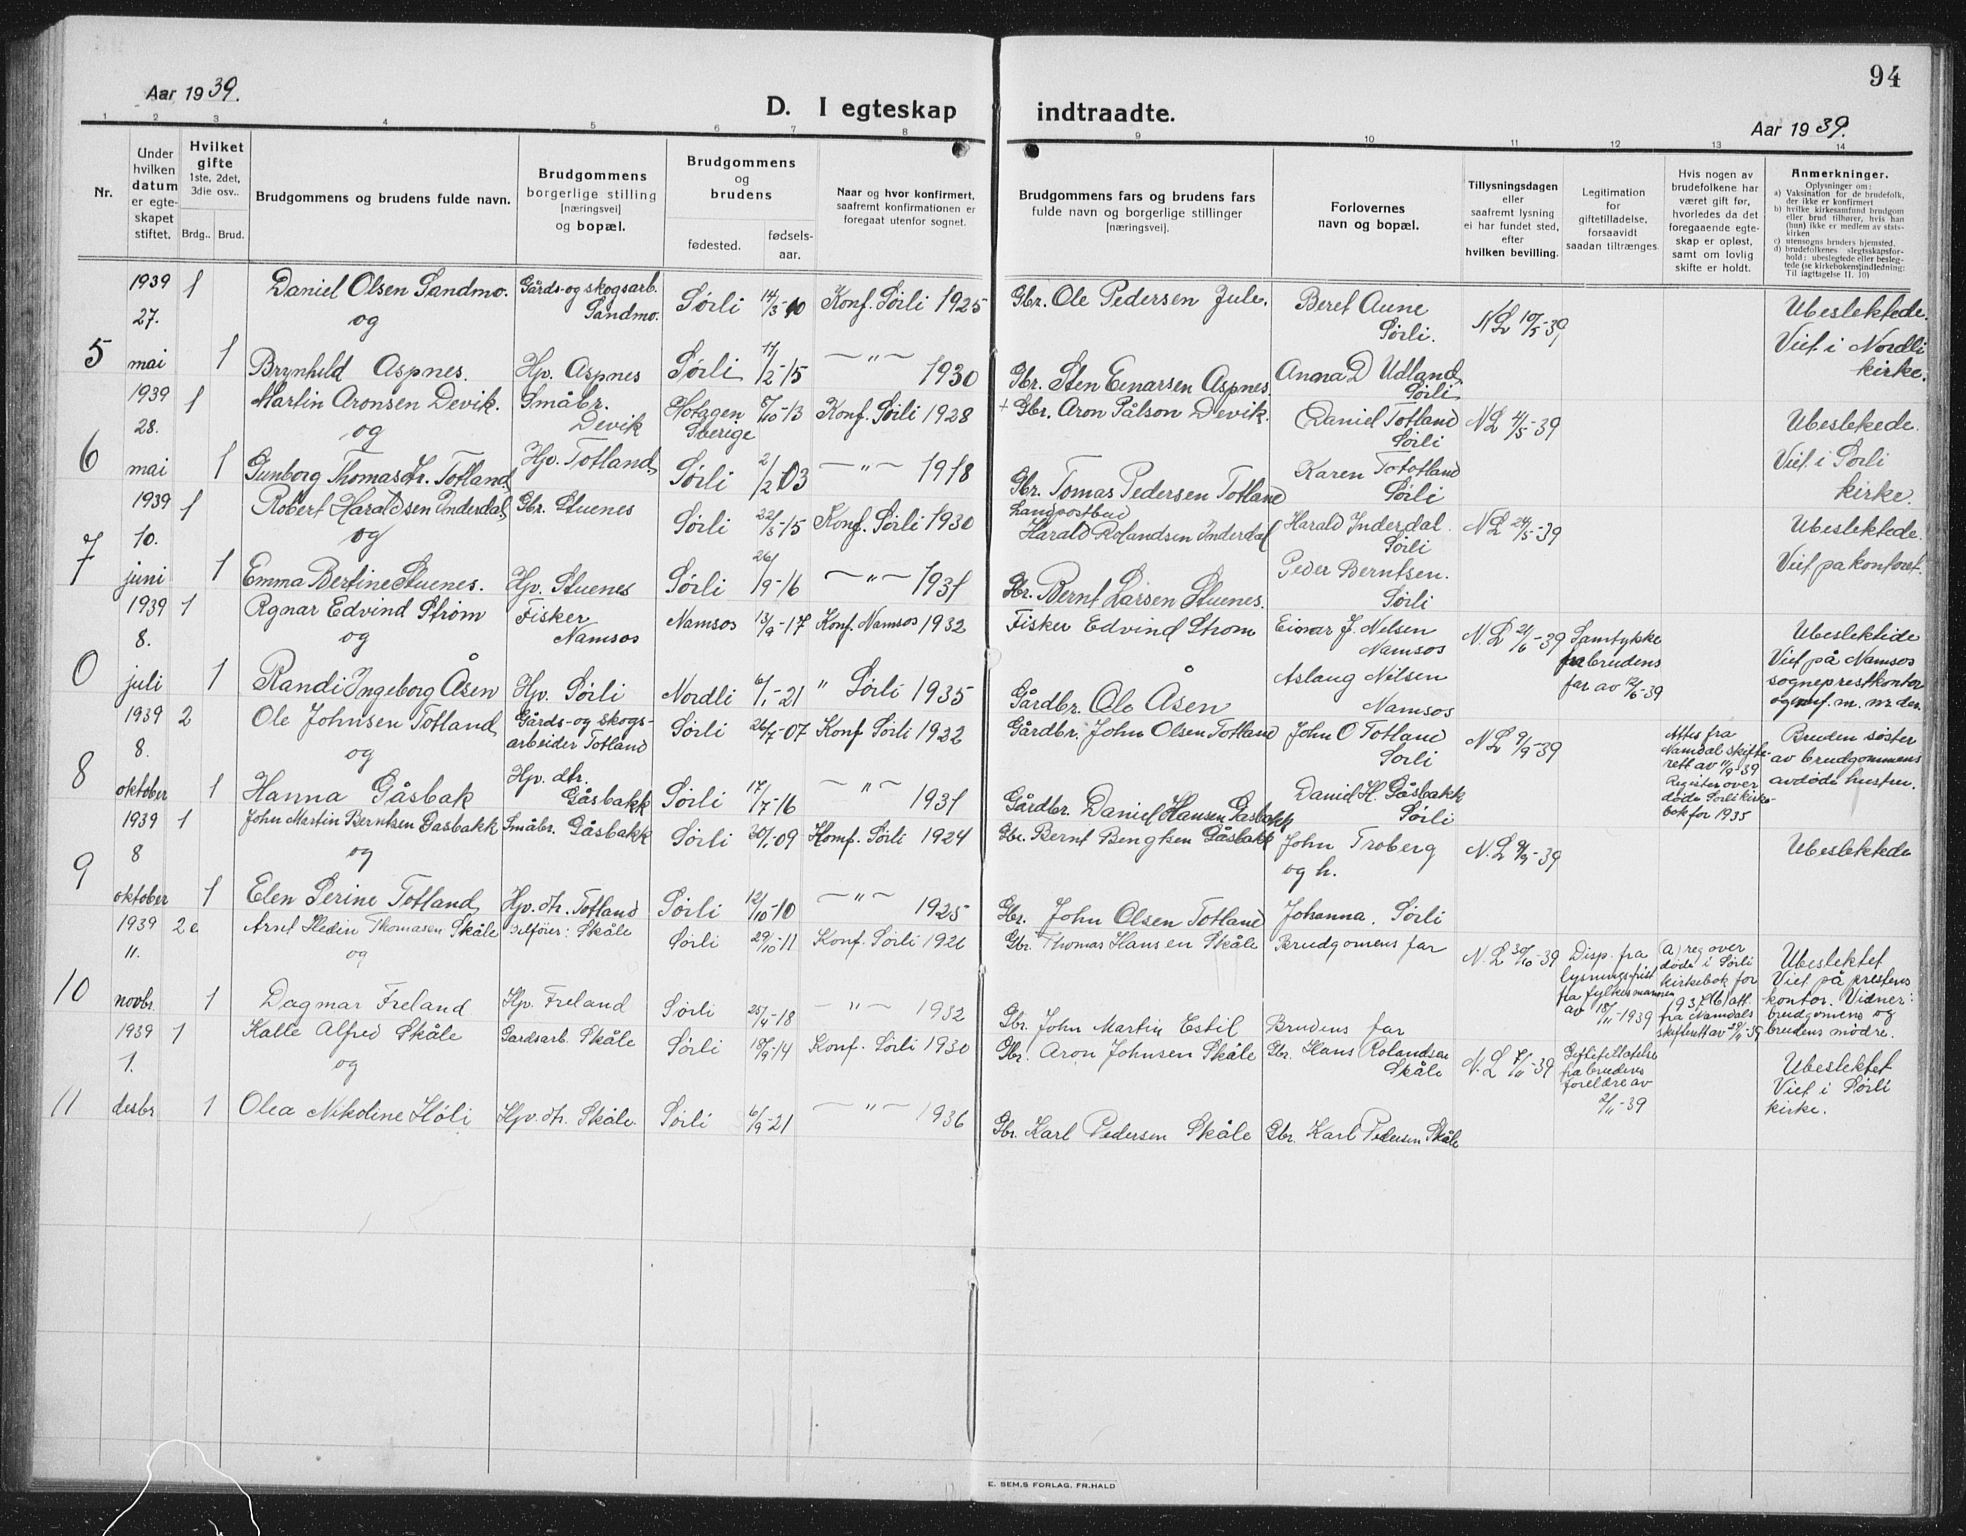 94
Aar 1939.
D. I egteskap indtraadte.
Aar 1939.
1 2 3 4 5 6 7 8 9 10 11 12 13 14
Nr.
Under hvilken datum er egteskapet stiftet.
Hvilket gifte 1ste, 2det, 3die osv..
Brdg.. Brud.
Brudgommens og brudens fulde navn.
Brudgommens borgerlige stilling [næringsvei] og bopæl.
Brudgommens og brudens
fødested. fødsels-aar.
Naar og hvor konfirmert, saafremt konfirmationen er foregaat utenfor sognet.
Brudgommens fars og brudens fars fulde navn og borgerlige stillinger [næringsvei].
Forlovernes navn og bopæl.
Tillysningsdagen eller saafremt lysning ei har fundet sted, efter hvilken bevilling.
Legitimation for giftetilladelse, forsaavidt saadan tiltrænges.
Hvis nogen av brudefolkene har været gift før, hvorledes da det foregaaende egteskap er opløst, samt om lovlig skifte er holdt.
Anmerkninger.
Oplysninger om:
a) Vaksination for de brudefolk, der ikke er konfirmert
b) hvilke kirkesamfund brudgom eller brud tilhører, hvis han (hun) ikke er medlem av statskirken
c) utensogns bruders hjemsted.
d) brudefolkenes slegtsskapsforhold: ubeslegtede eller beslegtede (se kirkebokens indledning: Til iagttagelse II. 10)
5
1939 27. mai
1 Daniel Olsen Sandmo. Gårds- og skogsarb. Sandmo. Sørli 14/3-10 Konf. Sørli 1925 Gbr. Ole Pedersen Jule. Beret Aune Sørli. N L 10/5-39 Ubeslektede.
og Viet i Nordli kirke.
1 Brynhild Aspnes. Hp. Aspnes Sørli 17/2-15 —"— 1930 Gbr. Sten Einarsen Aspnes. Anna D Udland Sørli
6
1939 28. mai
1 Martin Aronsen Devik. Småbr. Devik Hotagen Sverige 8/10-13 Konf. Sørli 1928 + Gbr. Aron Pålson Devik. Daniel Totland Sørli N L 4/5-39 Ubeslekede.
og Viet i Sørli kirke.
1 Gunborg Thomasdtr. Totland Hp. Totland Sørli 2/2-03 —"— 1918 Gbr. Tomas Pedersen Totland Karen Tototland Sørli
7
1939 10. juni
1 Robert Haraldsen Inderdal Gbr. Stuenes Sørli 22/5-15 Konf. Sørli 1930 Langpostbud Harald Rolandsen Inderdal Harald Inderdal. Sørli N L 24/5-39 Ubeslektede.
og Viet pa kontoret.
1 Emma Bertine Stuenes. Hp. Stuenes Sørli 26/9-16 —"— 1931 Gbr. Bernt Larsen Stuenes. Peder Berntsen. Sørli
0
1939 8. juli
1 Ragnar Edvind Strøm Fisker Namsos Namsos 13/9-17 Konf. Namsos 1932 Fisker Edvind Strøm Einar J. Nilsen Namsos N. L 21/6-39 Samtykke fra brudens far av 12/6-39 Ubeslektide
og Viet på Namsos sogneprestkontor
1 Randi Ingeborg Åsen Hp. Sørli Nordli 6/1-21 " Sørli 1935 Gårdbr. Ole Åsen Aslaug Nilsen Namsos
8
1939 8. oktober
2 Ole Johnsen Totland Gårds- og skogsarbeider Totland Sørli 26/7-07 Konf Sørli 1922 Gårdbr. John Olsen Totland John O Totland Sørli N L 9/9-39 Attes fra Namdal skifterett av 11/9-39 Register over døde Sørli kirkebok for 1935 Bruden søster av brudgommens avdøde hustru.
og
1 Hanna Gåsbak Hp. dtr. Gåsbakk Sørli 17/7-16 —"— 1931 Gårdbr. Daniel Hansen Gasbakk Daniel H. Gåsbakk Sørli
9
1939 8 oktober
1 John Martin Berntsen Gasbakk Småbr. Gåsbakk Sørli 20/1-09 Komf. Sørli 1924 Gbr. Bernt Bengtsen Gåsbakk John Troberg og h. N. L 9/9-39 Ubeslektede
og
1 Elen Serine Totland Hp. dtr. Totland Sørli 12/10-10 —"— 1925 Gbr. John Olsen Totland Johanna. Sørli
10
1939 11. novbr.
2 e Arnt Hedin Thomasen Skåle Bilfører: Skåle Sørli 29/10-11 Konf. Sørli 1926 Gbr. Thomas Hansen Skåle Brudgomens far N. L 30/10-39 Disp. fra lysningsfrist fra fylkesmannen av 18/11-1939 (a) reg over døde i Sørli kirkebok for 1937 (b) att. fra Namdals skifterett av 29/11-39 Ubeslektet Viet på prestens kontor. Vidner: brudgomens og brudens mødre.
og
1 Dagmar Freland Hp. Freland Sørli 25/4-18 —"— 1932 Gbr. John Martin Estil Brudens far
11
1939 1. desbr
1 Kalle Alfred Skåle Gardsarb. Skåle Sørli 18/9-14 Konf. Sørli 1930 Gbr. Aron Johnsen Skåle Gbr. Hans Rolandsen Skåle N. L 7/11-39 Giftetillatelse fra brudens foreldre av 2/11-39 Ubeslektet Viet i Sørli kirke.
og
1 Olea Nikoline Holi Hp. dtr. Skåle. Sørli 6/9-21 —"— 1936 Gbr. Karl Pedersen Skåle Gbr. Karl Pedersen Skåle
E. SEM,S FORLAG, FR.HALD